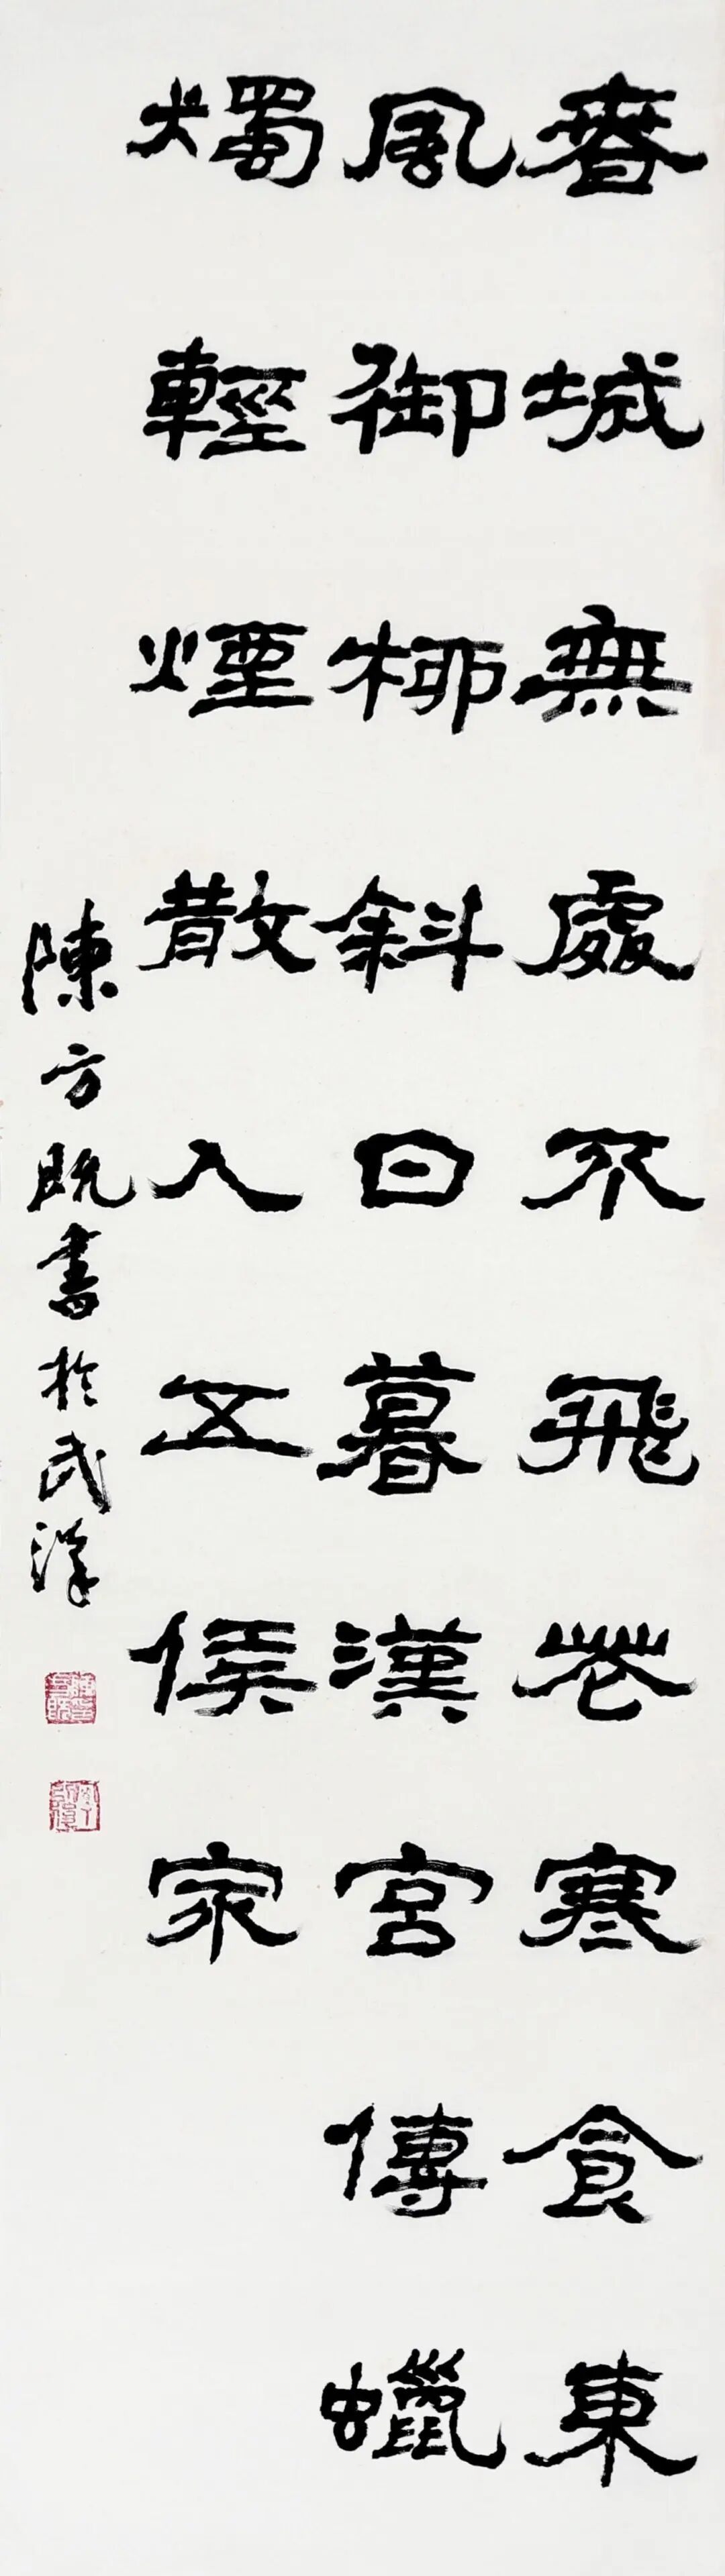 春城無處不飛花寒食東
風御柳斜日暮漢宮傳蠟
燭輕煙散入五侯家
陳方既書於武漢
陳方既